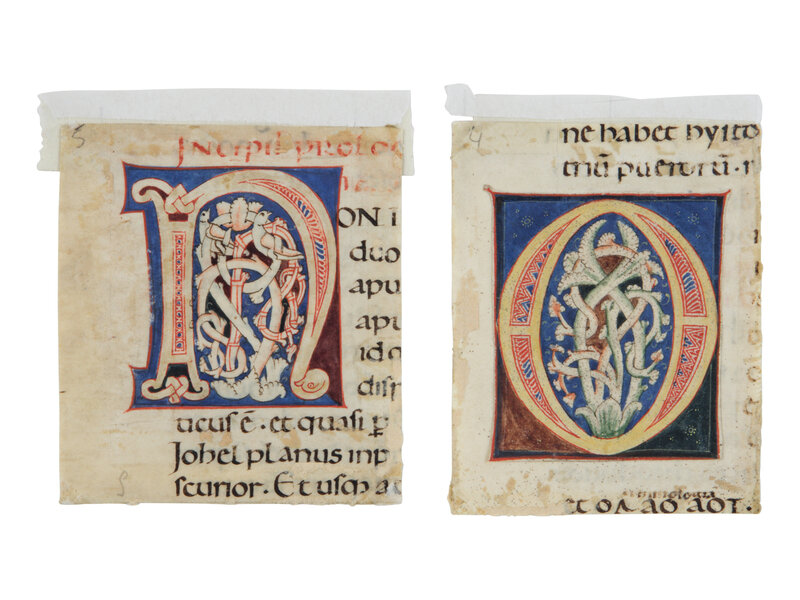 5
Jncipit prolo
NON I
duo
apu
apu
id o
disp
ticus ē · et quasi p̄
Johel planus inp
scurior · Et usq; a
4
ne habet hysto
triū puerorū · r
O